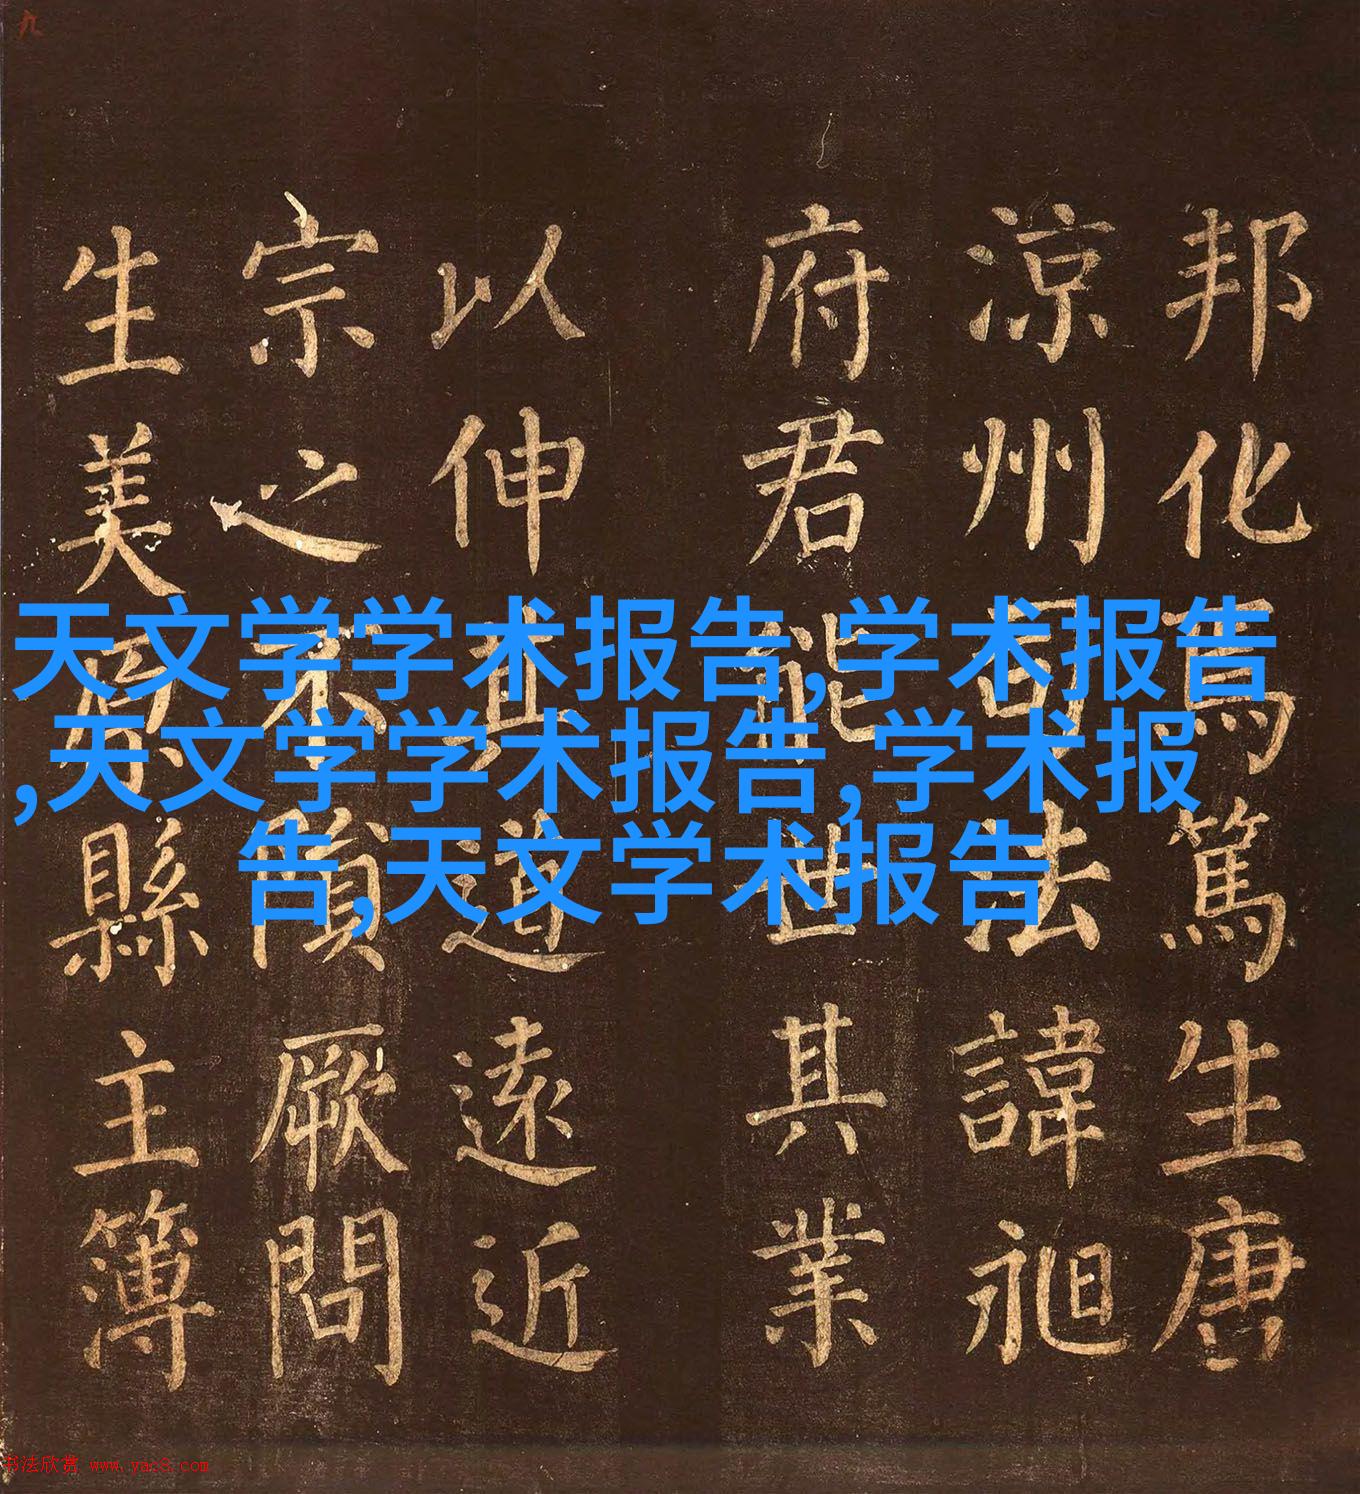 邦化為篤生唐
涼州司法諱昶
府君能世其業
以伸道遠近
宗之不隕厥問
生美原縣主簿
天文学学术报告,学术报告
,天文学学术报告,学术报
告,天文学术报告
书法欣赏 www.yac8.com